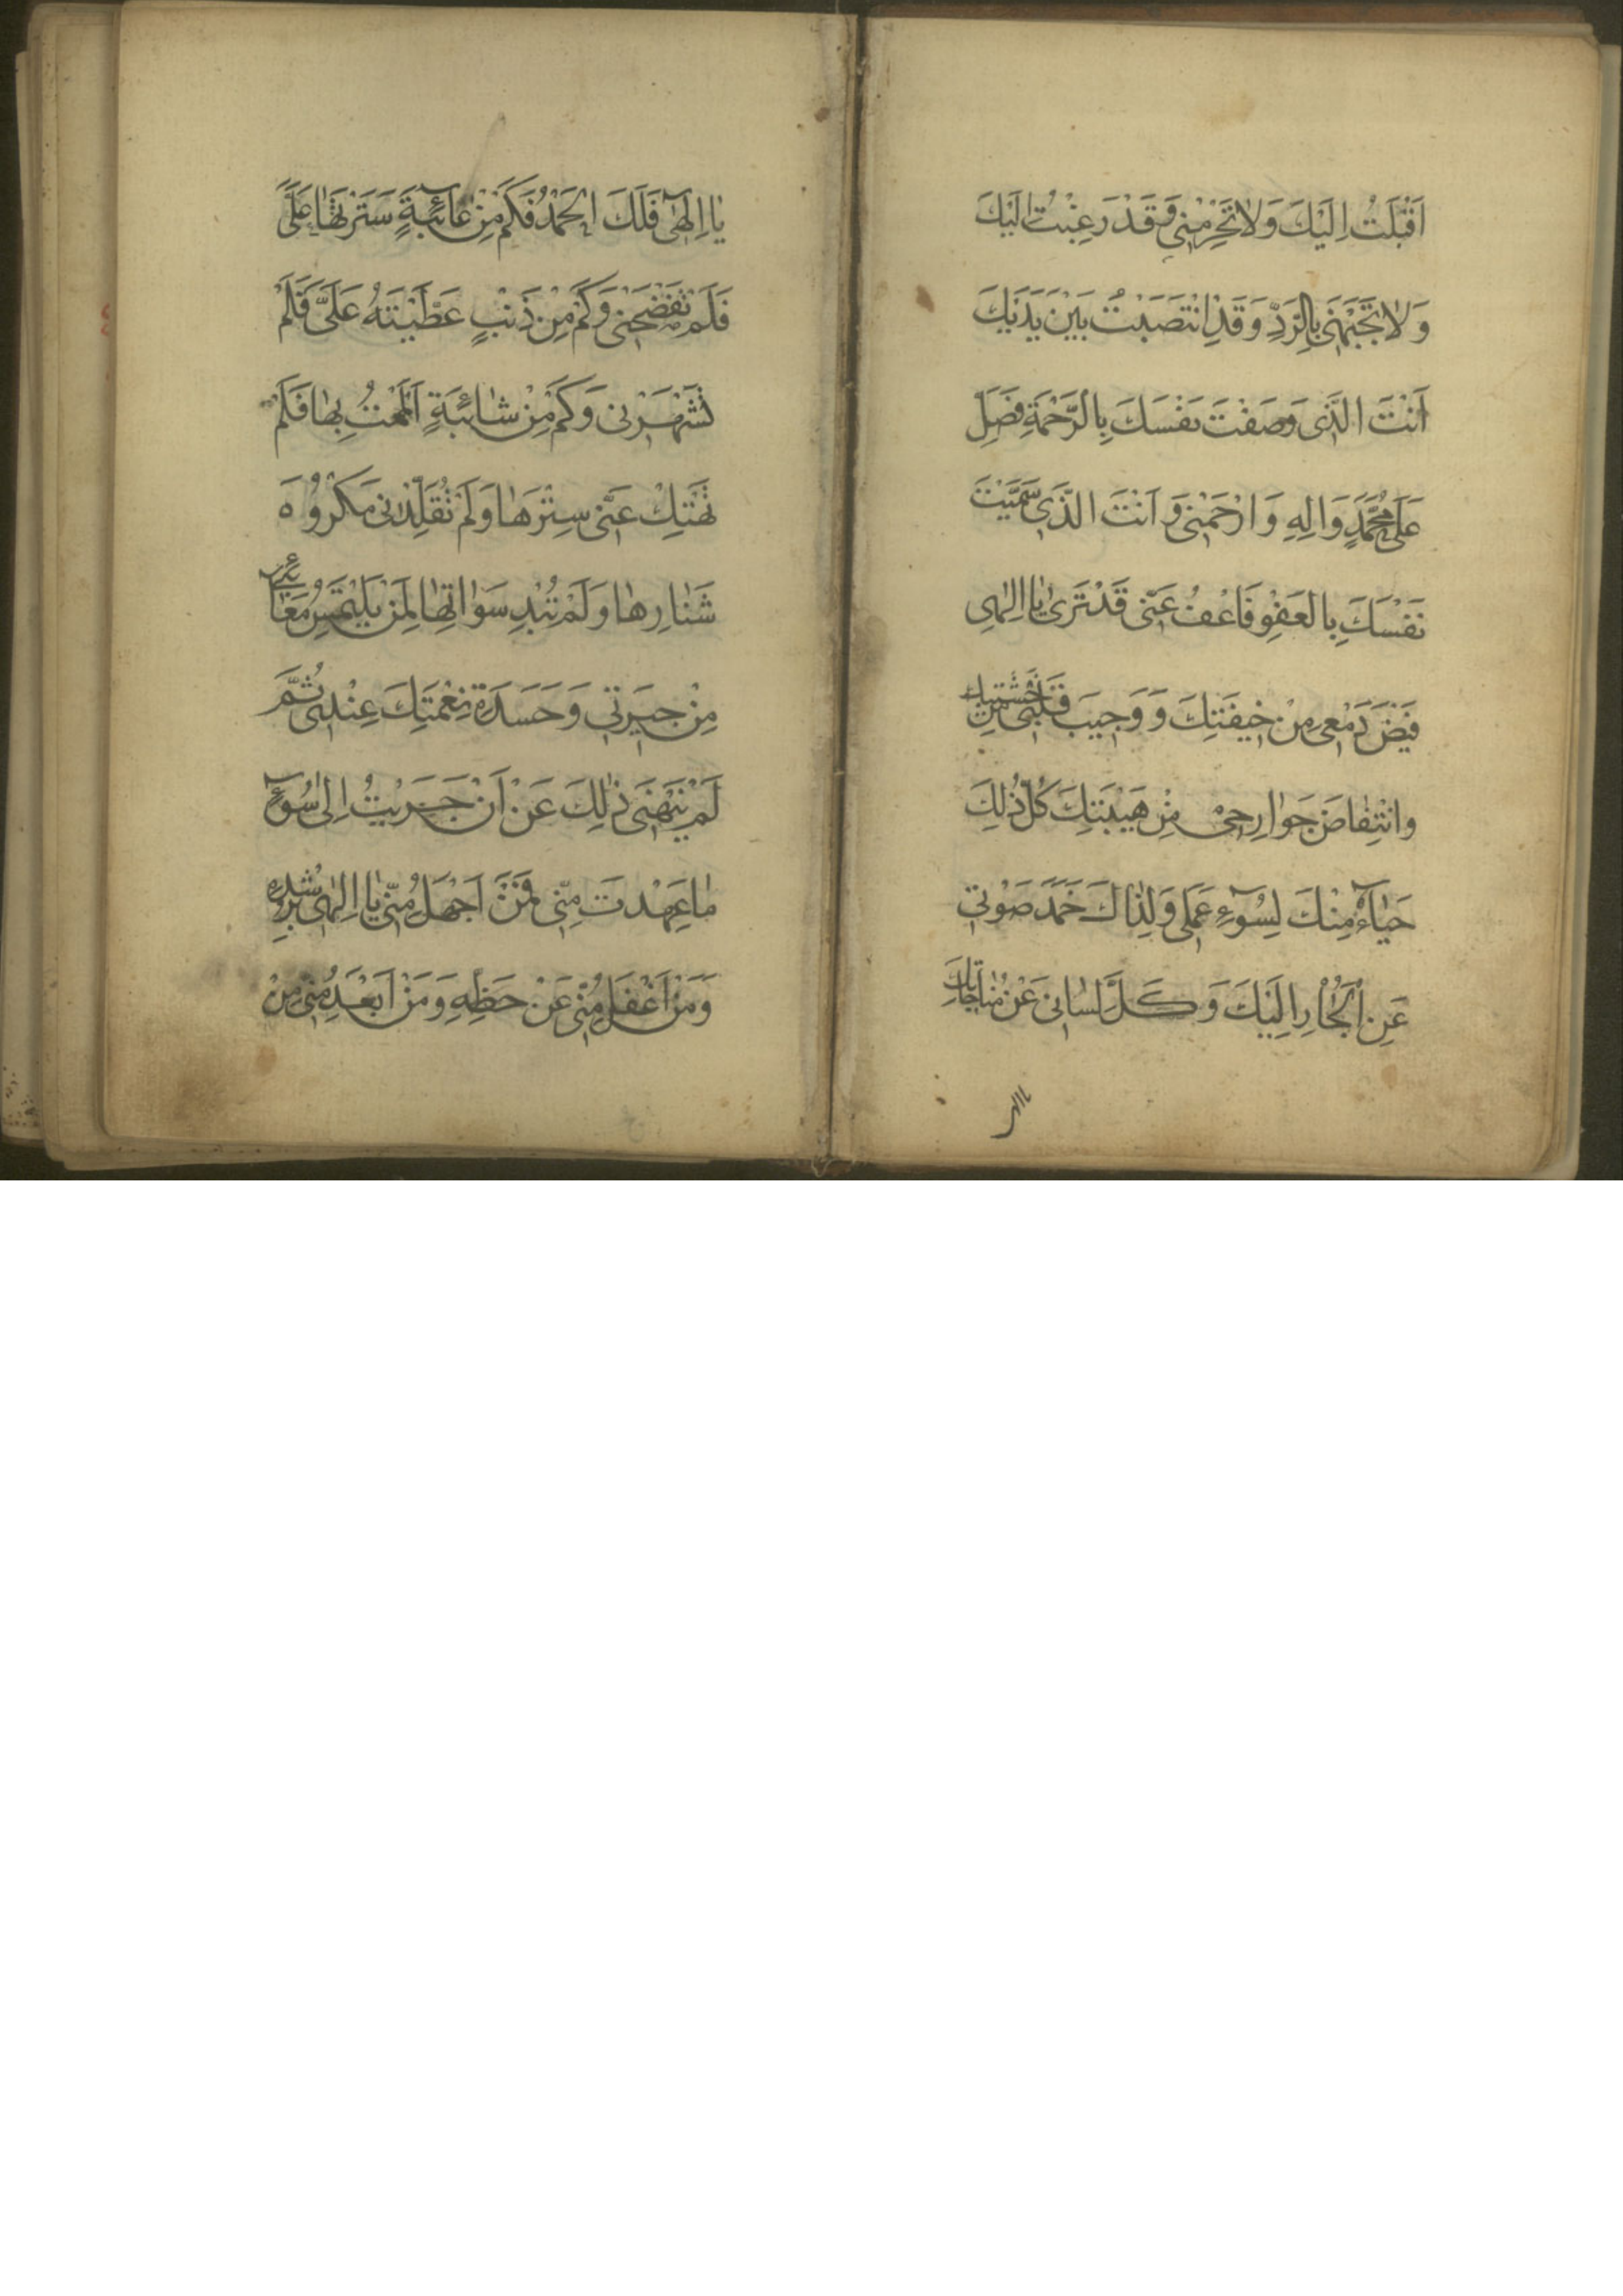 اَقْبَلْتُ اِلَيْكَ وَلاٰ تَحْرِمْنِي وَقَدْ رَغِبْتُ اِلَيْكَ
وَلاٰ تَجْبَهْنِي بِالرَّدِّ وَقَدِ انْتَصَبْتُ بَيْنَ يَدَيْكَ
اَنْتَ الَّذِي وَصَفْتَ نَفْسَكَ بِالرَّحْمَةِ فَصَلِّ
عَلىٰ مُحَمَّدٍ وَاٰلِهِ وَارْحَمْنِي وَاَنْتَ الَّذِي سَمَّيْتَ
نَفْسَكَ بِالْعَفْوِ فَاعْفُ عَنّي قَدْ تَرىٰ يٰا اِلٰهِي
فَيْضَ دَمْعِي مِنْ خِيفَتِكَ وَوَجِيبَ قَلْبِي مِنْ خَشْيَتِكَ
وَانْتِفٰاضَ جَوٰارِحِي مِنْ هَيْبَتِكَ كُلُّ ذٰلِكَ
حَيٰاءً مِنْكَ لِسُوۤءِ عَمَلِي وَلِذٰاكَ خَمَدَ صَوْتِي
عَنِ الْجَأْرِ اِلَيْكَ وَكَلَّ لِسٰانِي عَنْ مُنٰاجٰاتِكَ
يا الهى
يٰا اِلٰهِي فَلَكَ الْحَمْدُ فَكَمْ مِنْ عٰاۤئِبَةٍ سَتَرْتَهٰا عَلَيَّ
فَلَمْ تَفْضَحْنِي وَكَمْ مِنْ ذَنْبٍ غَطَّيْتَهُ عَلَيَّ فَلَمْ
تَشْهَرْنِي وَكَمْ مِنْ شٰائِبَةٍ اَلْمَمْتُ بِهٰا فَلَمْ
تَهْتِكْ عَنّي سِتْرَهٰا وَلَمْ تُقَلِّدْنِي مَكْرُوهَ
شَنٰارِهٰا وَلَمْ تُبْدِ سَوْاٰتِهٰا لِمَنْ يَلْتَمِسُ مَعٰائِبِي
مِنْ جِيرَتِي وَحَسَدَةِ نِعْمَتِكَ عِنْدِي ثُمَّ
لَمْ يَنْهَنِي ذٰلِكَ عَنْ اَنْ جَرَيْتُ اِلىٰ سُوۤءِ
مٰا عَهِدْتَ مِنّي فَمَنْ اَجْهَلُ مِنّي يٰا اِلٰهِي بِرُشْدِهِ
وَمَنْ اَغْفَلُ مِنّي عَنْ حَظِّهِ وَمَنْ اَبْعَدُ مِنّي مِنْ